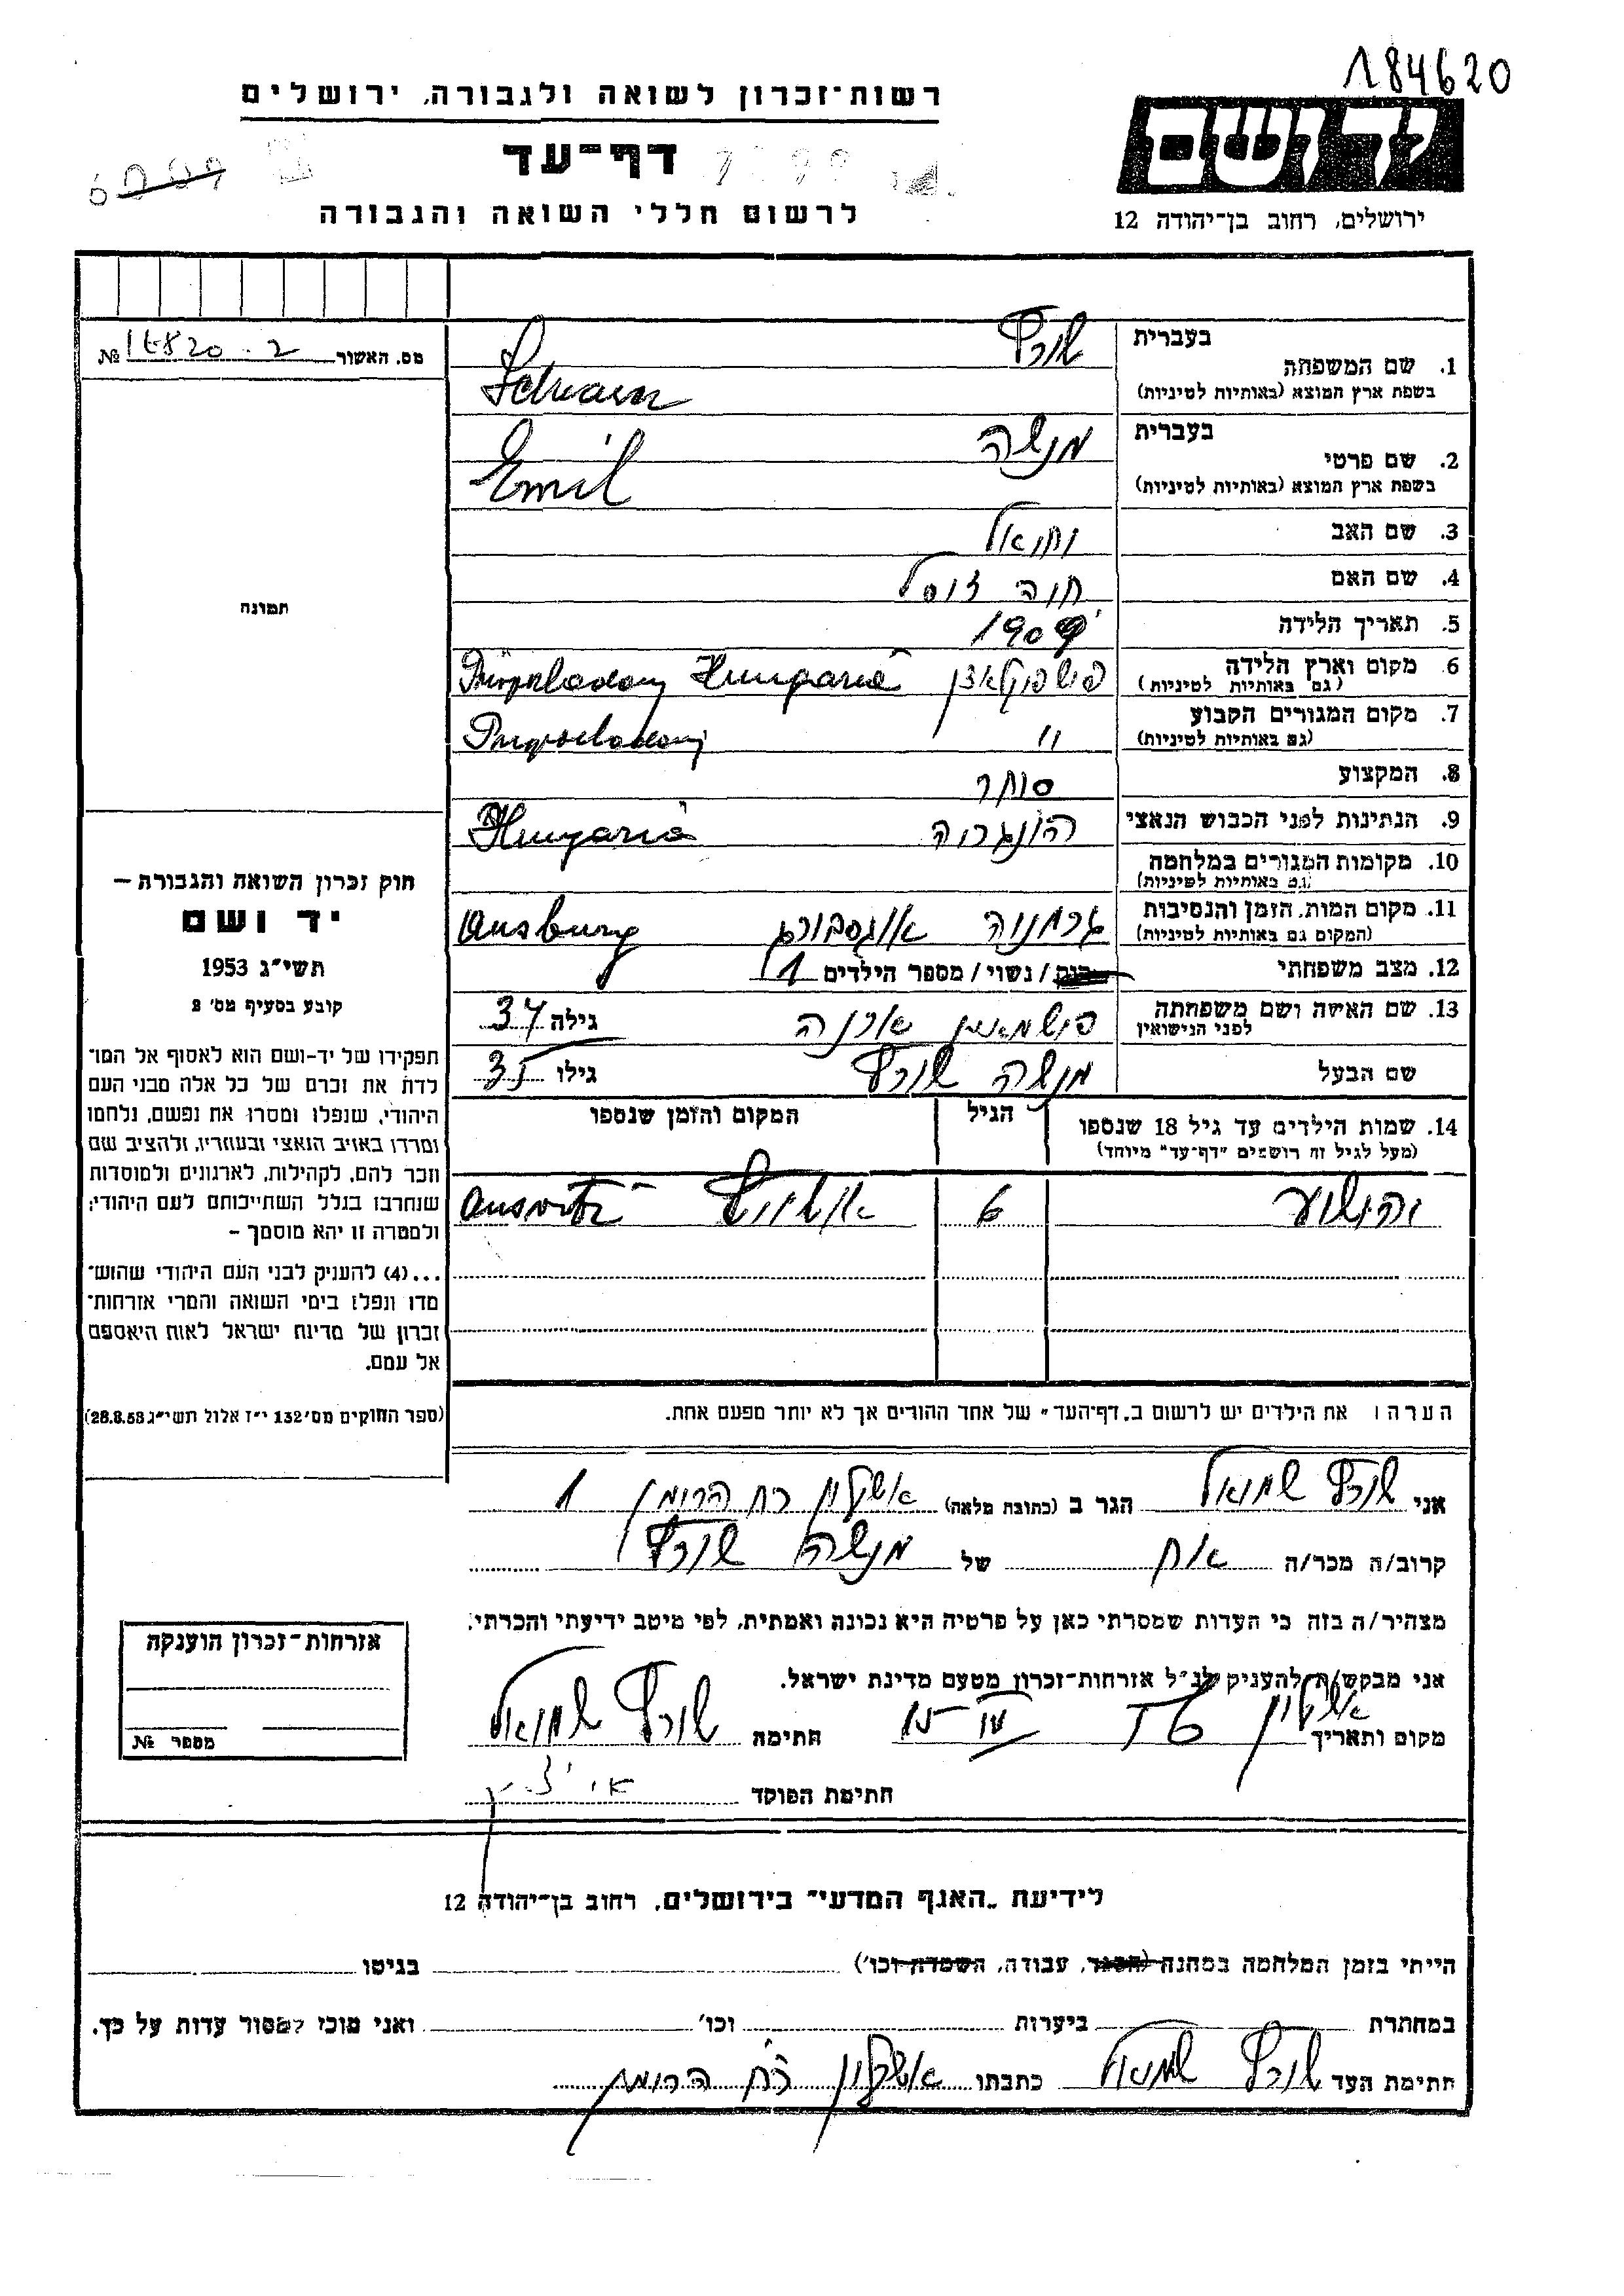 184620
רשות־זכרון לשואה ולגבורה, ירושלים
דף־עד
לרשום חללי השואה והגבורה
ירושלים, רחוב בן־יהודה 12
מס. האשור № 2
תמונה
חוק זכרון השואה והגבורה —
יד ושם
תשי״ג 1953
קובע בסעיף מס׳ 2
תפקידו של יד-ושם הוא לאסוף אל המו־
לדת את זכרם של כל אלה מבני העם
היהודי, שנפלו ומסרו את נפשם, נלחמו
ומרדו באויב הנאצי ובעוזריו, ולהציב שם
וזכר להם, לקהילות, לארגונים ולמוסדות
שנחרבו בגלל השתייכותם לעם היהודי;
ולמטרה זו יהא מוסמך –
...(4) להעניק לבני העם היהודי שהוש־
מדו ונפלו בימי השואה והמרי אזרחות־
זכרון של מדינת ישראל לאות היאספם
אל עמם.
(ספר החוקים מס׳ 132 י״ז אלול תשי״ג 28.8.53)
בעברית שורץ
1. שם המשפחה
בשפת ארץ המוצא (באותיות לטיניות)
בעברית מנשה
2. שם פרטי
בשפת ארץ המוצא (באותיות לטיניות) Emil
3. שם האב
4. שם האם חוה
5. תאריך הלידה
6. מקום וארץ הלידה
(גם באותיות לטיניות) Hungaria
7. מקום המגורים הקבוע
(גם באותיות לטיניות) "
8. המקצוע סוחר
9. הנתינות לפני הכבוש הנאצי הונגריה Hungaria
10. מקומות המגורים במלחמה
(גם באותיות לטיניות)
11. מקום המות, הזמן והנסיבות גרמניה אוגסבורג Ausburg
(המקום גם באותיות לטיניות)
12. מצב משפחתי רוק / נשוי / מספר הילדים 1
13. שם האישה ושם משפחתה
לפני הנישואין גילה 34
שם הבעל מנשה שורץ גילו 35
14. שמות הילדים עד גיל 18 שנספו הגיל המקום והזמן שנספו
(מעל לגיל זה רושמים "דף-עד" מיוחד)
יהושע 6 אושויץ
הערה: את הילדים יש לרשום ב„דף־העד״ של אחד ההורים אך לא יותר מפעם אחת.
אני שורץ שמואל הגר ב (כתובת מלאה) אשקלון רח 1
קרוב/ה מכר/ה אח של מנשה שורץ
מצהיר/ה בזה כי העדות שמסרתי כאן על פרטיה היא נכונה ואמתית, לפי מיטב ידיעתי והכרתי.
אני מבקש/ת להעניק לנ״ל אזרחות־זכרון מטעם מדינת ישראל.
מקום ותאריך אשקלון חתימה שורץ שמואל
חתימת הפוקד
אזרחות־זכרון הוענקה
מספר №
לידיעת „האגף המדעי״ בירושלים, רחוב בן־יהודה 12
הייתי בזמן המלחמה במחנה (הסגר, עבודה, השמדה וכו׳) בגיטו
במחתרת ביערות וכו׳ ואני מוכן למסור עדות על כך.
חתימת העד שורץ שמואל כתבתו אשקלון רח